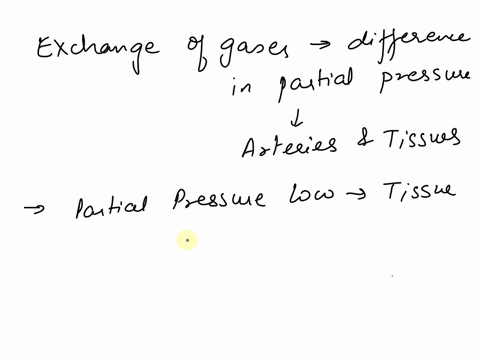 Exchange of gases → difference
in partial pressure
↓
Arteries & Tissues
→ Partial Pressure low → Tissue